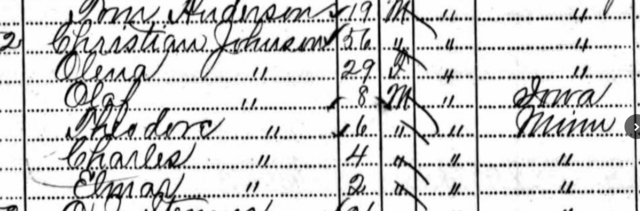 Tom Anderson 19 M " "
2 Christian Johnson 56 " " "
Olena " 29 F " "
Olaf " 8 M " Iowa
Theodore " 6 " " Minn
Charles " 4 " " "
Elmar " 2 " " "